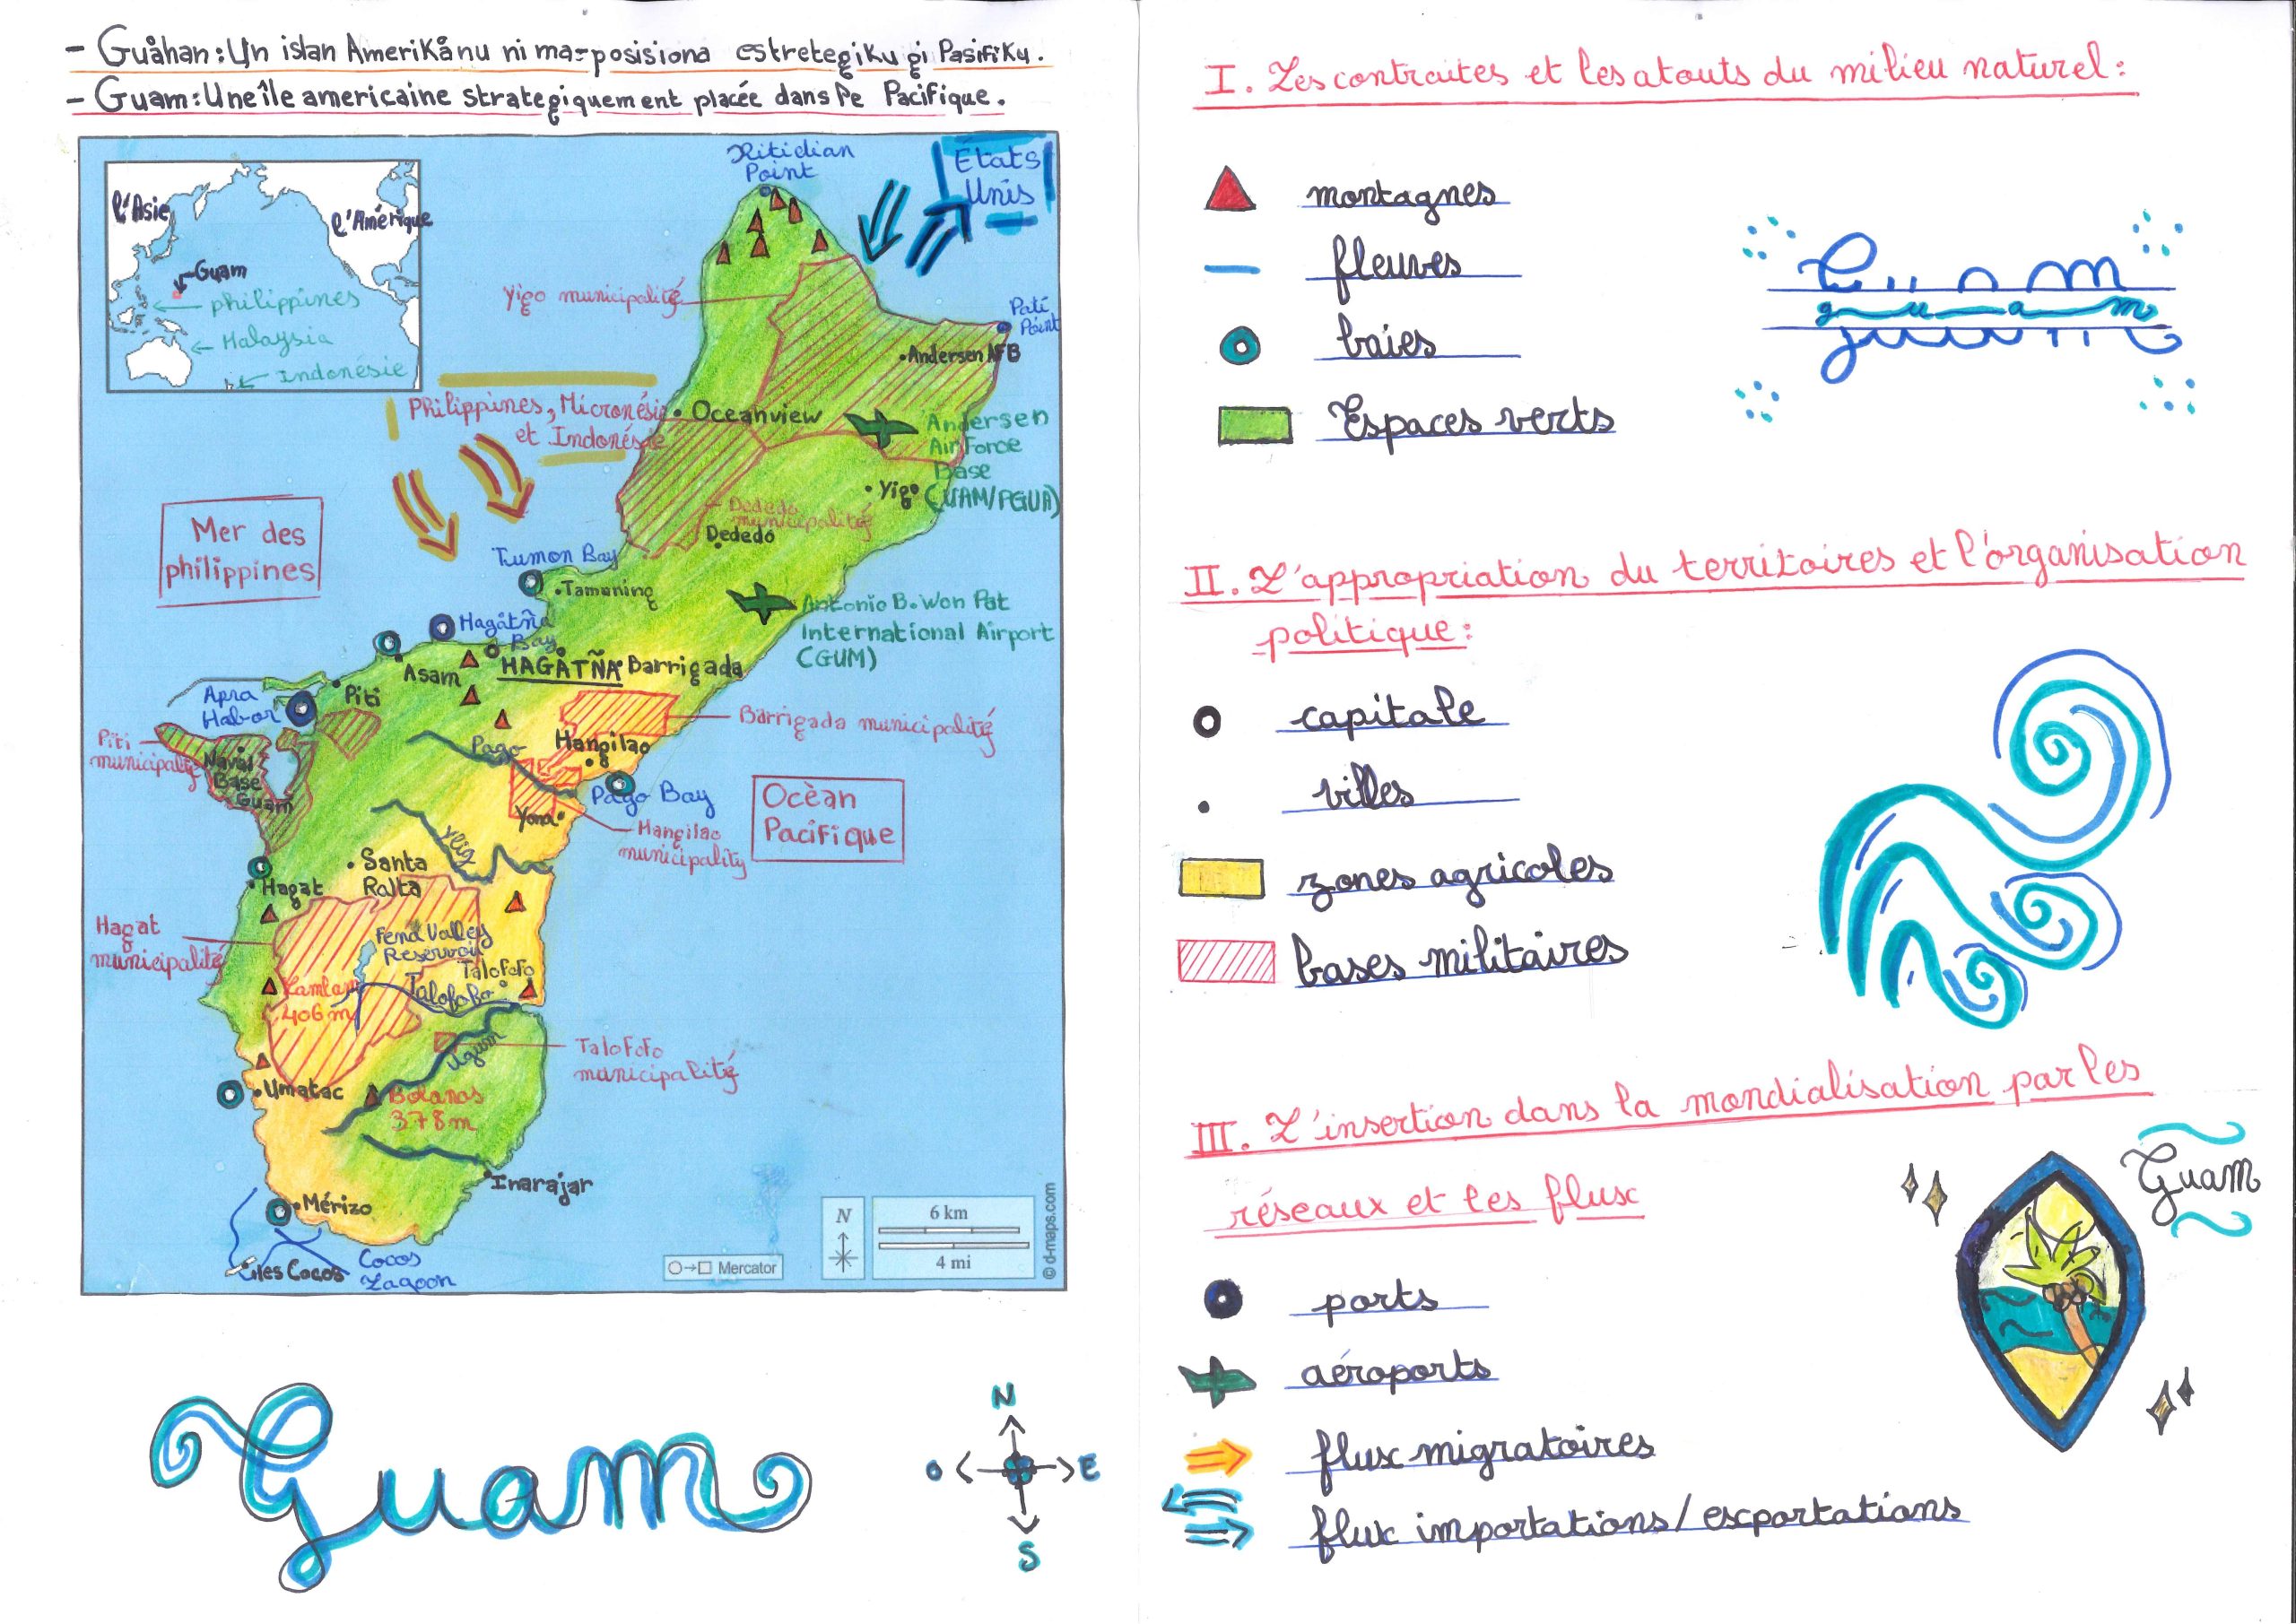 - Guåhan : Un islan Amerikånu ni ma-posisiona estretegiku gi Pasifiku.
- Guam : Une île americaine strategiquement placée dans le Pacifique.
l'Asie
l'Amérique
Guam
philippines
Malaysia
Indonésie
Ritidian
Point
États
Unis
Yigo municipalité
Pati
Point
Andersen AFB
Philippines, Micronésie
et Indonésie
Oceanview
Andersen
Air Force
Base
(UAM/PGUA)
Yigo
Dededo
municipalité
Dededo
Mer des
philippines
Tumon Bay
Tamuning
Antonio B. Won Pat
International Airport
(GUM)
Hagåtña
Bay
HAGÅTÑA
Barrigada
Asam
Piti
Apra
Habor
Barrigada municipalité
Piti
municipalité
Naval
Base
Guam
Pago
Mangilao
Pago Bay
Ocèan
Pacifique
Yona
Mangilao
municipality
Ylig
Santa
Ralta
Hagat
Hagat
municipalité
Fena Valley
Reservoir
Talofofo
Talofofo
Lamlam
406 m
Ugum
Talofofo
municipalité
Umatac
Bolanos
378 m
Inarajar
Mérizo
îles Cocos
Cocos
Lagoon
Mercator
N
6 km
4 mi
© d-maps.com
Guam
N
O
E
S
I. Les contraites et les atouts du milieu naturel :
montagnes
fleuves
baies
Espaces verts
Guam
guam
II. L'appropriation du territoires et l'organisation
politique :
capitale
villes
zones agricoles
bases militaires
III. L'insertion dans la mondialisation par les
réseaux et les flux
Guam
ports
aéroports
flux migratoires
flux importations / exportations